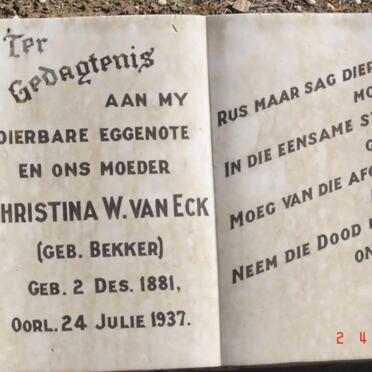 Ter
Gedagtenis
AAN MY
DIERBARE EGGENOTE
EN ONS MOEDER
CHRISTINA W. VAN ECK
(GEB. BEKKER)
GEB. 2 DES. 1881,
OORL. 24 JULIE 1937.
RUS MAAR SAG DIER
MO
IN DIE EENSAME S
O
MOEG VAN DIE AFG
NEEM DIE DOOD
ON
2 4